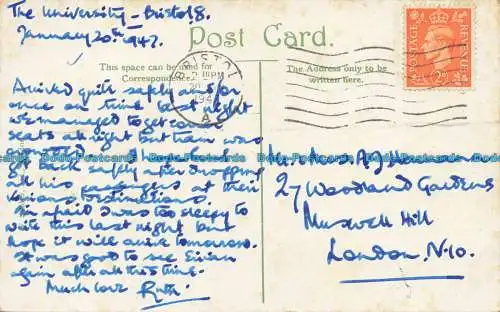 The University - Bristol 8.
January 20th 1947.
Post Card.
This space can be used for
Correspondence.
The Address only to be
written here.
BRISTOL
PM
194
A
POSTAGE
REVENUE
Arrived quite safely and for
once on time last night
We managed to get
seats alright but train was
crowded.
get back safely after dropping
all his passengers at their
various destinations.
I'm afraid I was too sleepy to
write this last night but
hope it will arrive tomorrow.
It was good to see
again after all this time.
Much love Ruth.
27 Woodland Gardens
Muswell Hill
London. N.10.
Body-Postcards.com